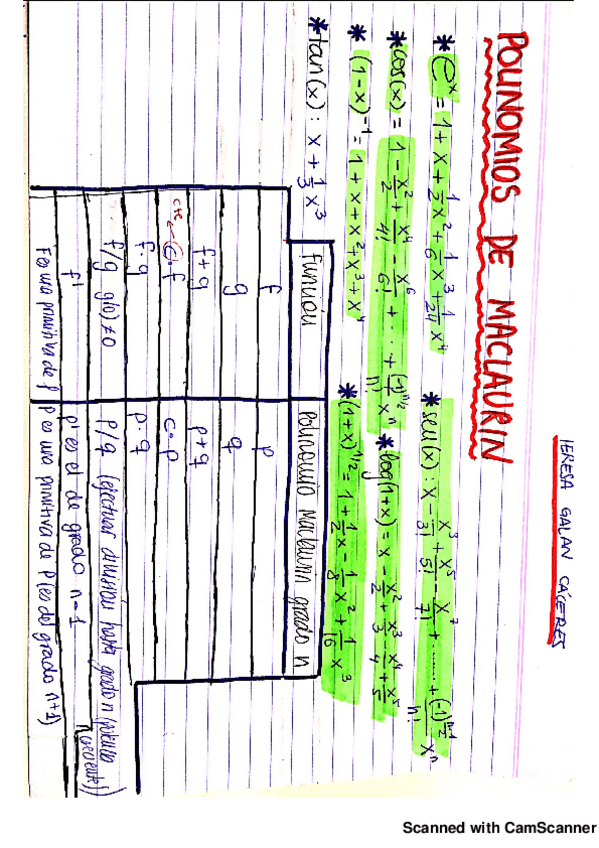 TERESA GALAN CÁCERES
POLINOMIOS DE MACLAURIN
* e^x = 1 + x + 1/2 x^2 + 1/6 x^3 + 1/24 x^4
* sen(x): x - x^3/3! + x^5/5! - x^7/7! + ...... + (-1)^(n-1/2)/n! x^n
* cos(x) = 1 - x^2/2 + x^4/4! - x^6/6! + ... + (-1)^(n/2)/n! x^n
* log(1+x) = x - x^2/2 + x^3/3 - x^4/4 + x^5/5
* (1-x)^-1 = 1 + x + x^2 + x^3 + x^4
* (1+x)^1/2 = 1 + 1/2 x - 1/8 x^2 + 1/16 x^3
* tan(x): x + 1/3 x^3
función polinomio Maclaurin grado n
f p
g q
f+g p+q
cte ← c·f c·p
f·g p·q
f/g g(0)≠0 p/q (efectuar división hasta grado n (potencia creciente))
f' p' es el de grado n-1
F es una primitiva de f P es una primitiva de P (es del grado n+1)
Scanned with CamScanner